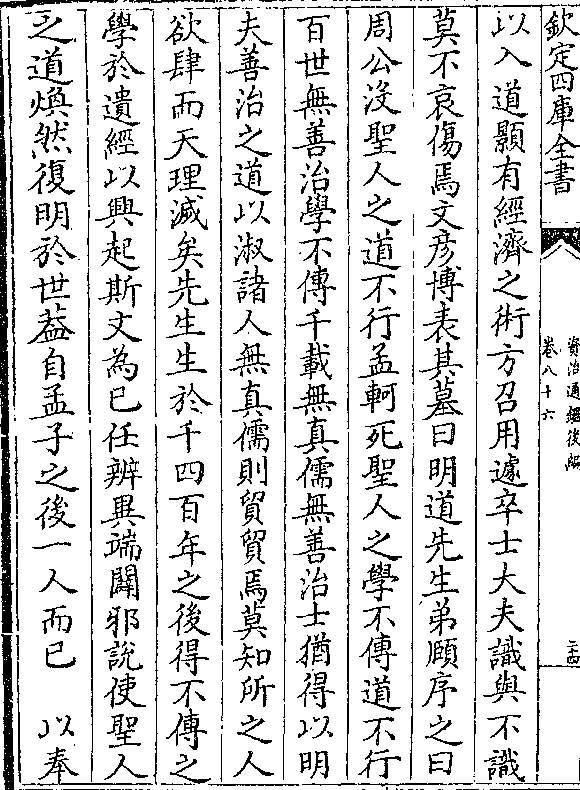 欽定四庫全書
資治通鑑後編
卷八十六
二十四
以入道顯有經濟之術方召用遽卒士大夫識與不識
莫不哀傷焉文彥博表其墓曰明道先生弟頤序之曰
周公沒聖人之道不行孟軻死聖人之學不傳道不行
百世無善治學不傳千載無真儒無善治士猶得以明
夫善治之道以淑諸人無真儒則貿貿焉莫知所之人
欲肆而天理滅矣先生生於千四百年之後得不傳之
學於遺經以興起斯文為已任辨異端闢邪說使聖人
之道煥然復明於世葢自孟子之後一人而已　以奉